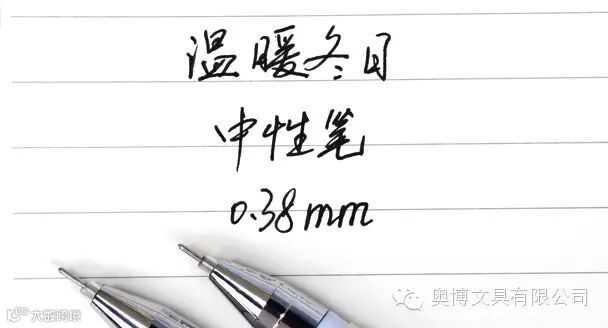 温暖冬日
中性笔
0.38mm
奥博文具有限公司
大数跨境